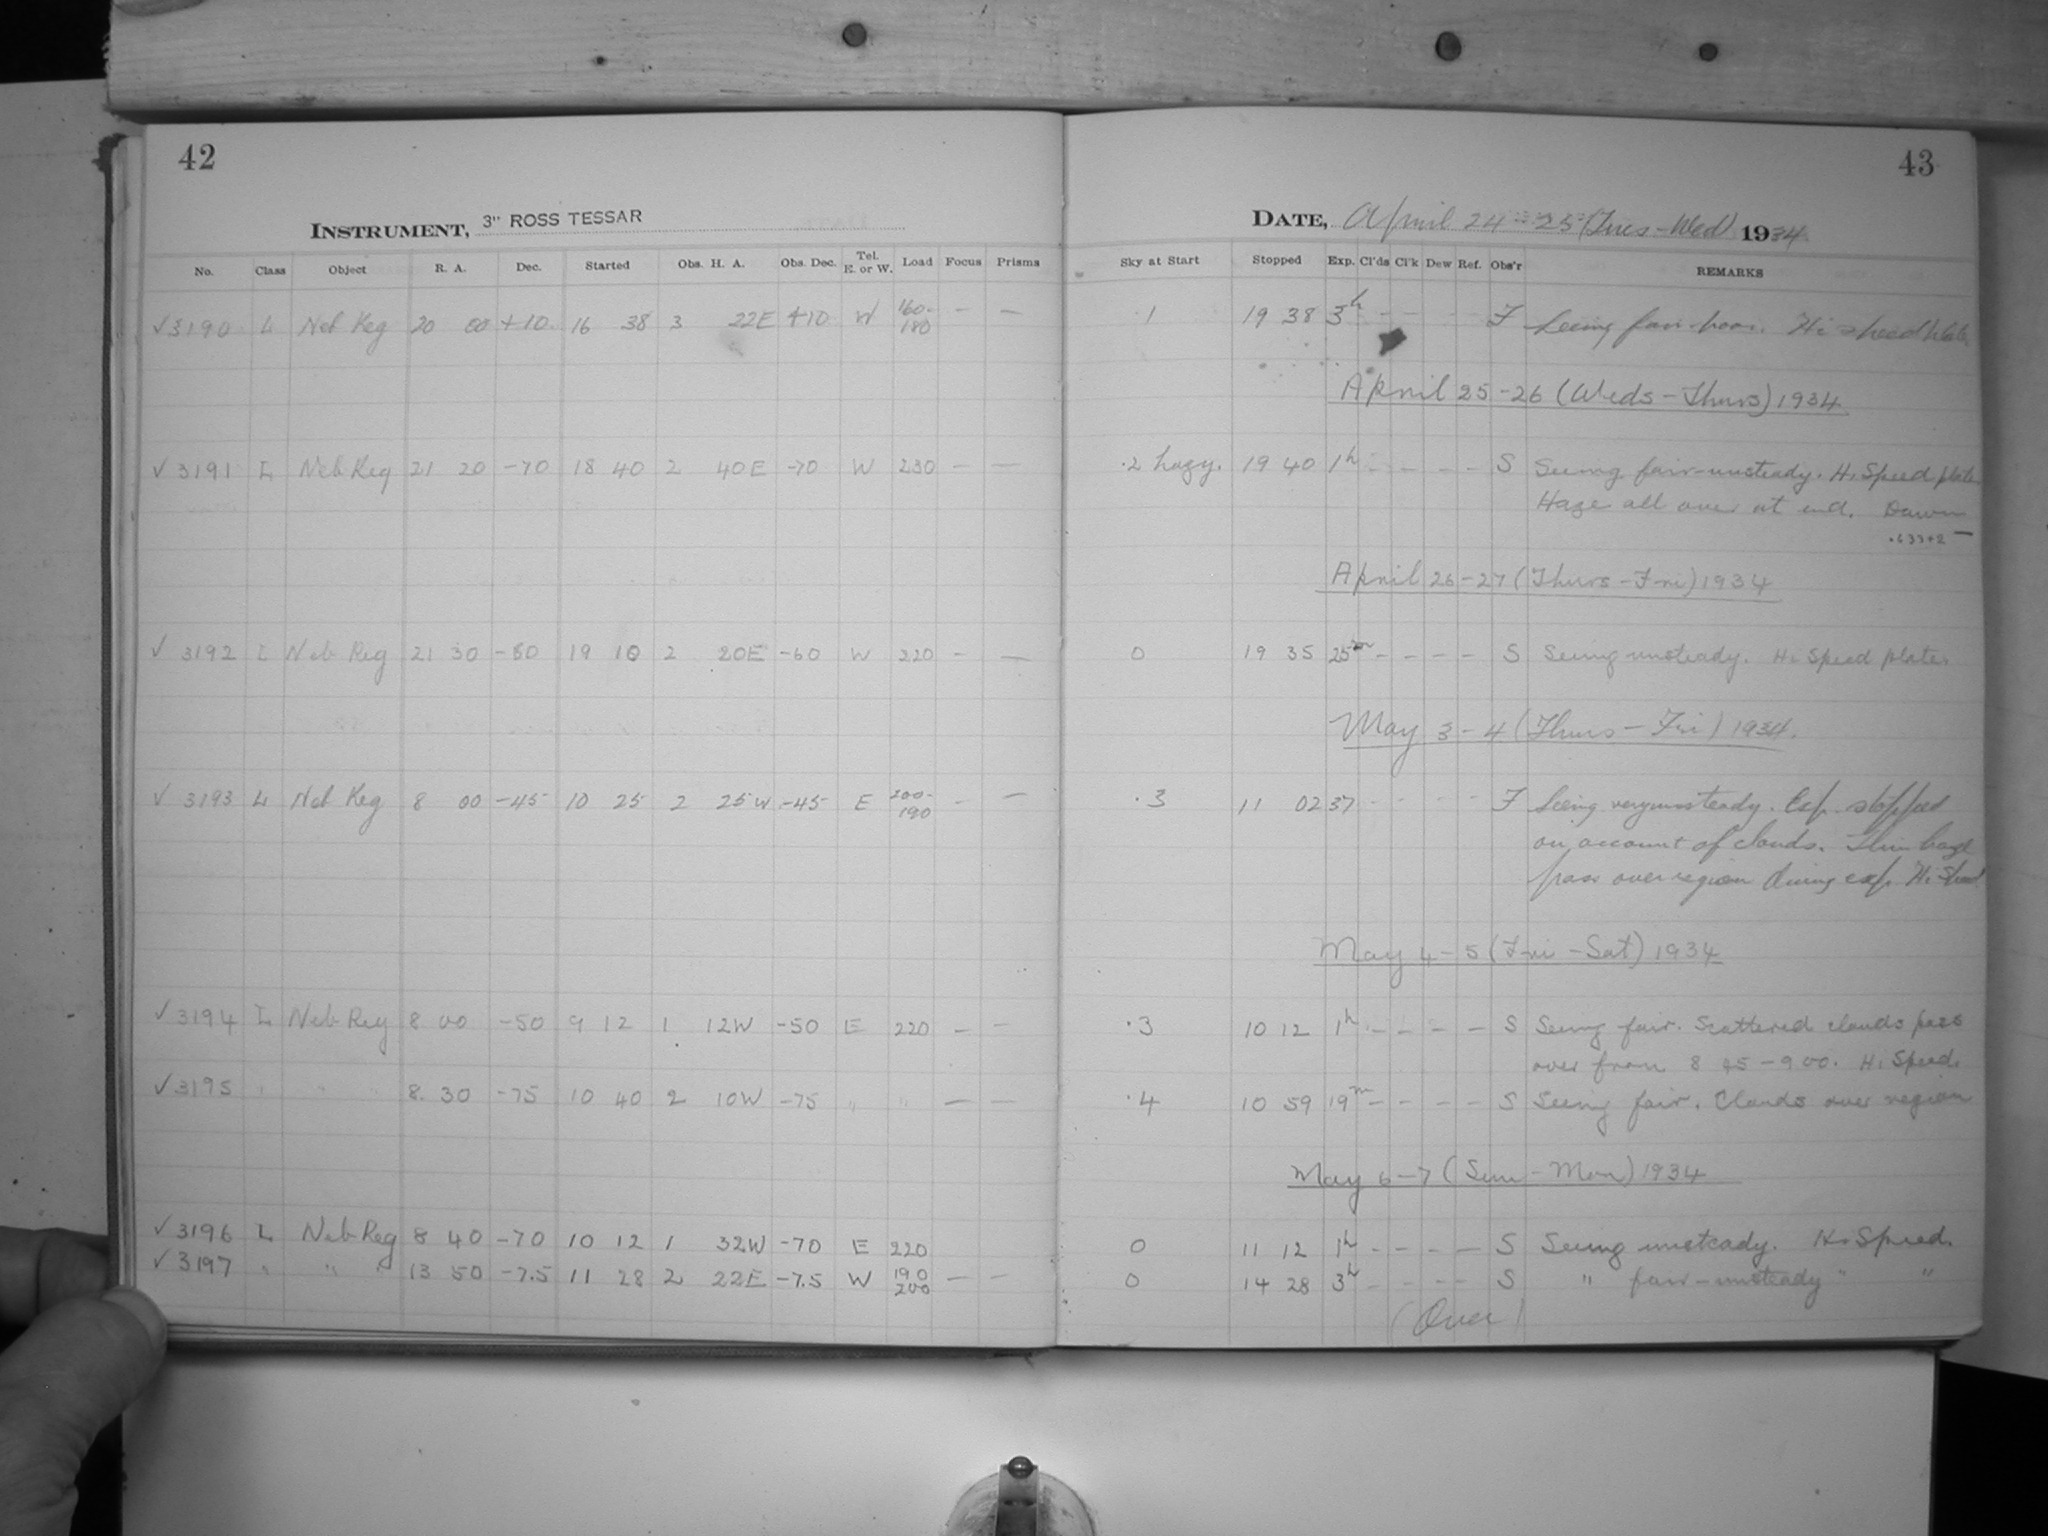 42
INSTRUMENT, 3" ROSS TESSAR
No. Class Object R. A. Dec. Started Obs. H. A. Obs. Dec. Tel. E. or W. Load Focus Prisms
✓3190 L Neb Reg 20 00 +10 16 38 3 22E +10 W 160-180 — —
✓3191 L Neb Reg 21 20 -70 18 40 2 40E -70 W 230 — —
✓ 3192 L Neb Reg 21 30 -60 19 10 2 20E -60 W 220 — —
✓ 3193 L Neb Reg 8 00 -45 10 25 2 25W -45 E 200-190 — —
✓3194 L Neb Reg 8 00 -50 9 12 1 12W -50 E 220 — —
✓3195 " " " 8 30 -75 10 40 2 10W -75 " " — —
✓3196 L Neb Reg 8 40 -70 10 12 1 32W -70 E 220
✓3197 " " " 13 50 -7.5 11 28 2 22E -7.5 W 190 200 — —
43
DATE, April 24-25 (Tues-Wed) 1934
Sky at Start Stopped Exp. Cl'ds Cl'k Dew Ref. Obs'r REMARKS
.1 19 38 3h - - - - F Seeing fair-poor. Hi speed plate
April 25-26 (Weds-Thurs) 1934
.2 hazy. 19 40 1h - - - - S Seeing fair-unsteady. Hi Speed plate
Haze all over at end. Dawn
April 26-27 (Thurs-Fri) 1934
0 19 35 25m - - - - S Seeing unsteady. Hi Speed plate.
May 3-4 (Thurs-Fri) 1934.
.3 11 02 37 - - - - F Seeing very unsteady. Exp. stopped
on account of clouds. Thin haze
pass over region during exp. Hi Speed
May 4-5 (Fri-Sat) 1934
.3 10 12 1h - - - - S Seeing fair. Scattered clouds pass
over from 8 45-9 00. Hi Speed.
.4 10 59 19m - - - - S Seeing fair. Clouds over region
May 6-7 (Sun-Mon) 1934
0 11 12 1h - - - - S Seeing unsteady. Hi Speed.
0 14 28 3h - - - - S " fair-unsteady " "
(Over)